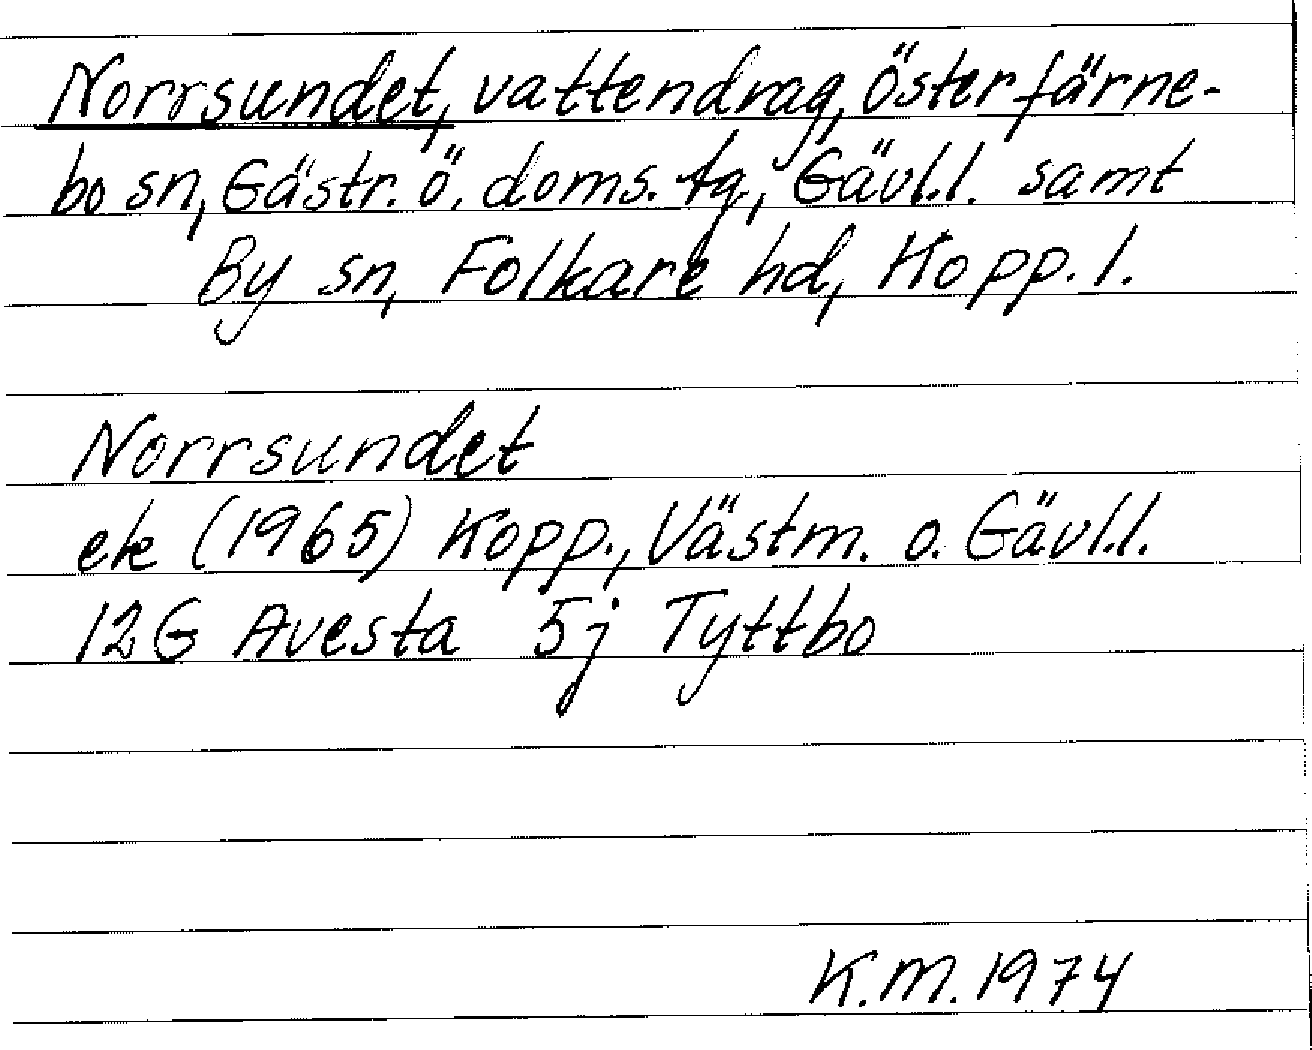 Norrsundet, vattendrag, Österfärne-
bo sn, Gästr. ö. doms. tg., Gävl.l. samt
By sn, Folkare hd, Kopp. l.
Norrsundet
ek (1965) Kopp., Västm. o. Gävl.l.
12G Avesta 5j Tyttbo
K.M. 1974